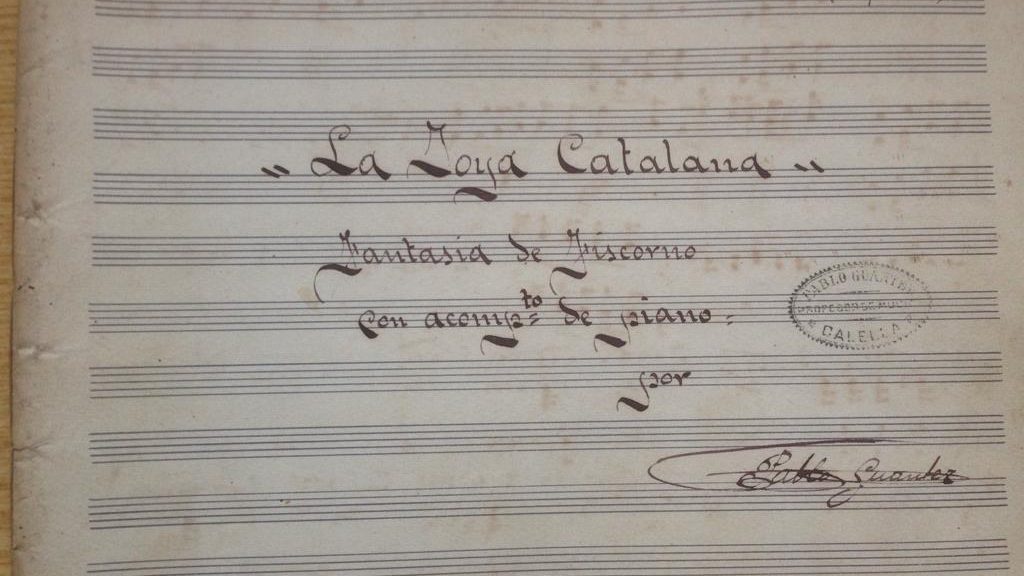 „ La Joya Catalana „
Fantasia de Fiscorno
con acomp.to de piano =
PABLO GUANTER
PROFESOR DE MUSICA
CALELLA
por
Pablo Guanter